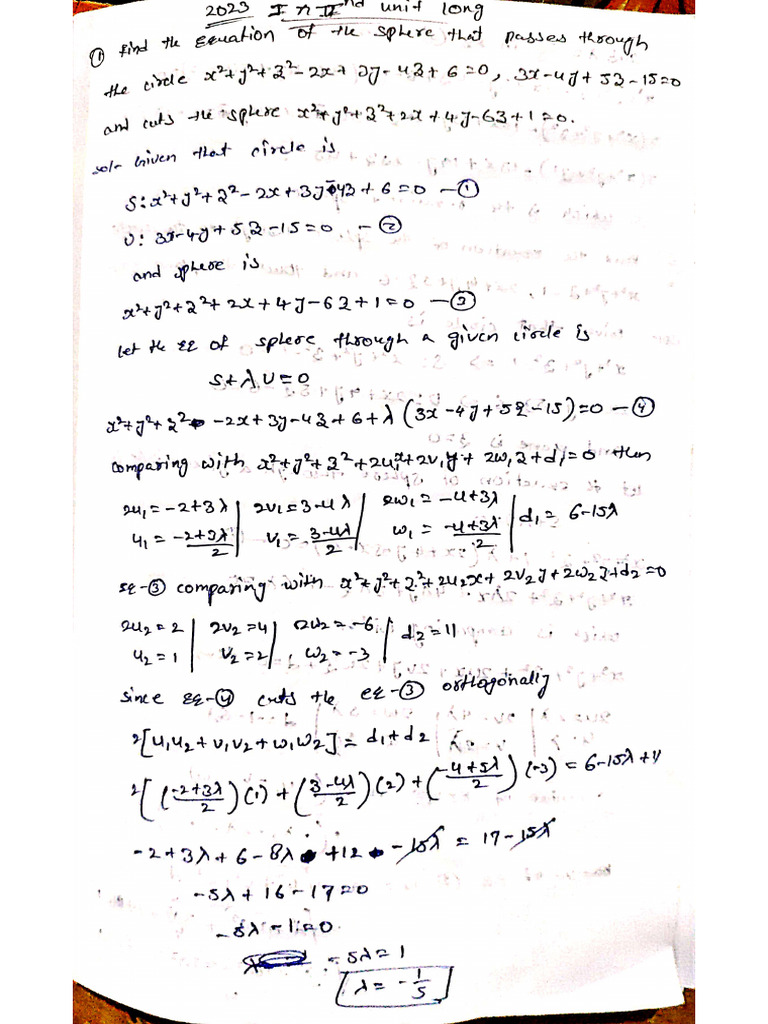 2023 I n II nd unit long
① Find the Equation of the sphere that passes through
the circle x²+y²+z²-2x+3y-4z+6=0, 3x-4y+5z-15=0
and cuts the sphere x²+y²+z²+2x+4y-6z+1=0.
sol- Given that circle is
S: x²+y²+z²-2x+3y-4z+6=0 -①
U: 3x-4y+5z-15=0 -②
and sphere is
x²+y²+z²+2x+4y-6z+1=0 -③
let the EQ of sphere through a given circle is
S+λU=0
x²+y²+z² -2x+3y-4z+6+λ(3x-4y+5z-15)=0 -④
comparing with x²+y²+z²+2u₁x+2v₁y+2w₁z+d₁=0 then
2u₁=-2+3λ | 2v₁=3-4λ | 2w₁=-4+3λ | d₁=6-15λ
u₁=(-2+3λ)/2 | v₁=(3-4λ)/2 | w₁=(-4+3λ)/2
EQ-③ comparing with x²+y²+z²+2u₂x+2v₂y+2w₂z+d₂=0
2u₂=2 | 2v₂=4 | 2w₂=-6 | d₂=11
u₂=1 | v₂=2 | w₂=-3
since EQ-④ cuts the EQ-③ orthogonally
2[u₁u₂+v₁v₂+w₁w₂]=d₁+d₂
2[((-2+3λ)/2)(1)+((3-4λ)/2)(2)+((-4+5λ)/2)(-3)=6-15λ+11
-2+3λ+6-8λ+12-15λ=17-15λ
-5λ+16-17=0
-5λ-1=0
-5λ=1
λ=-1/5